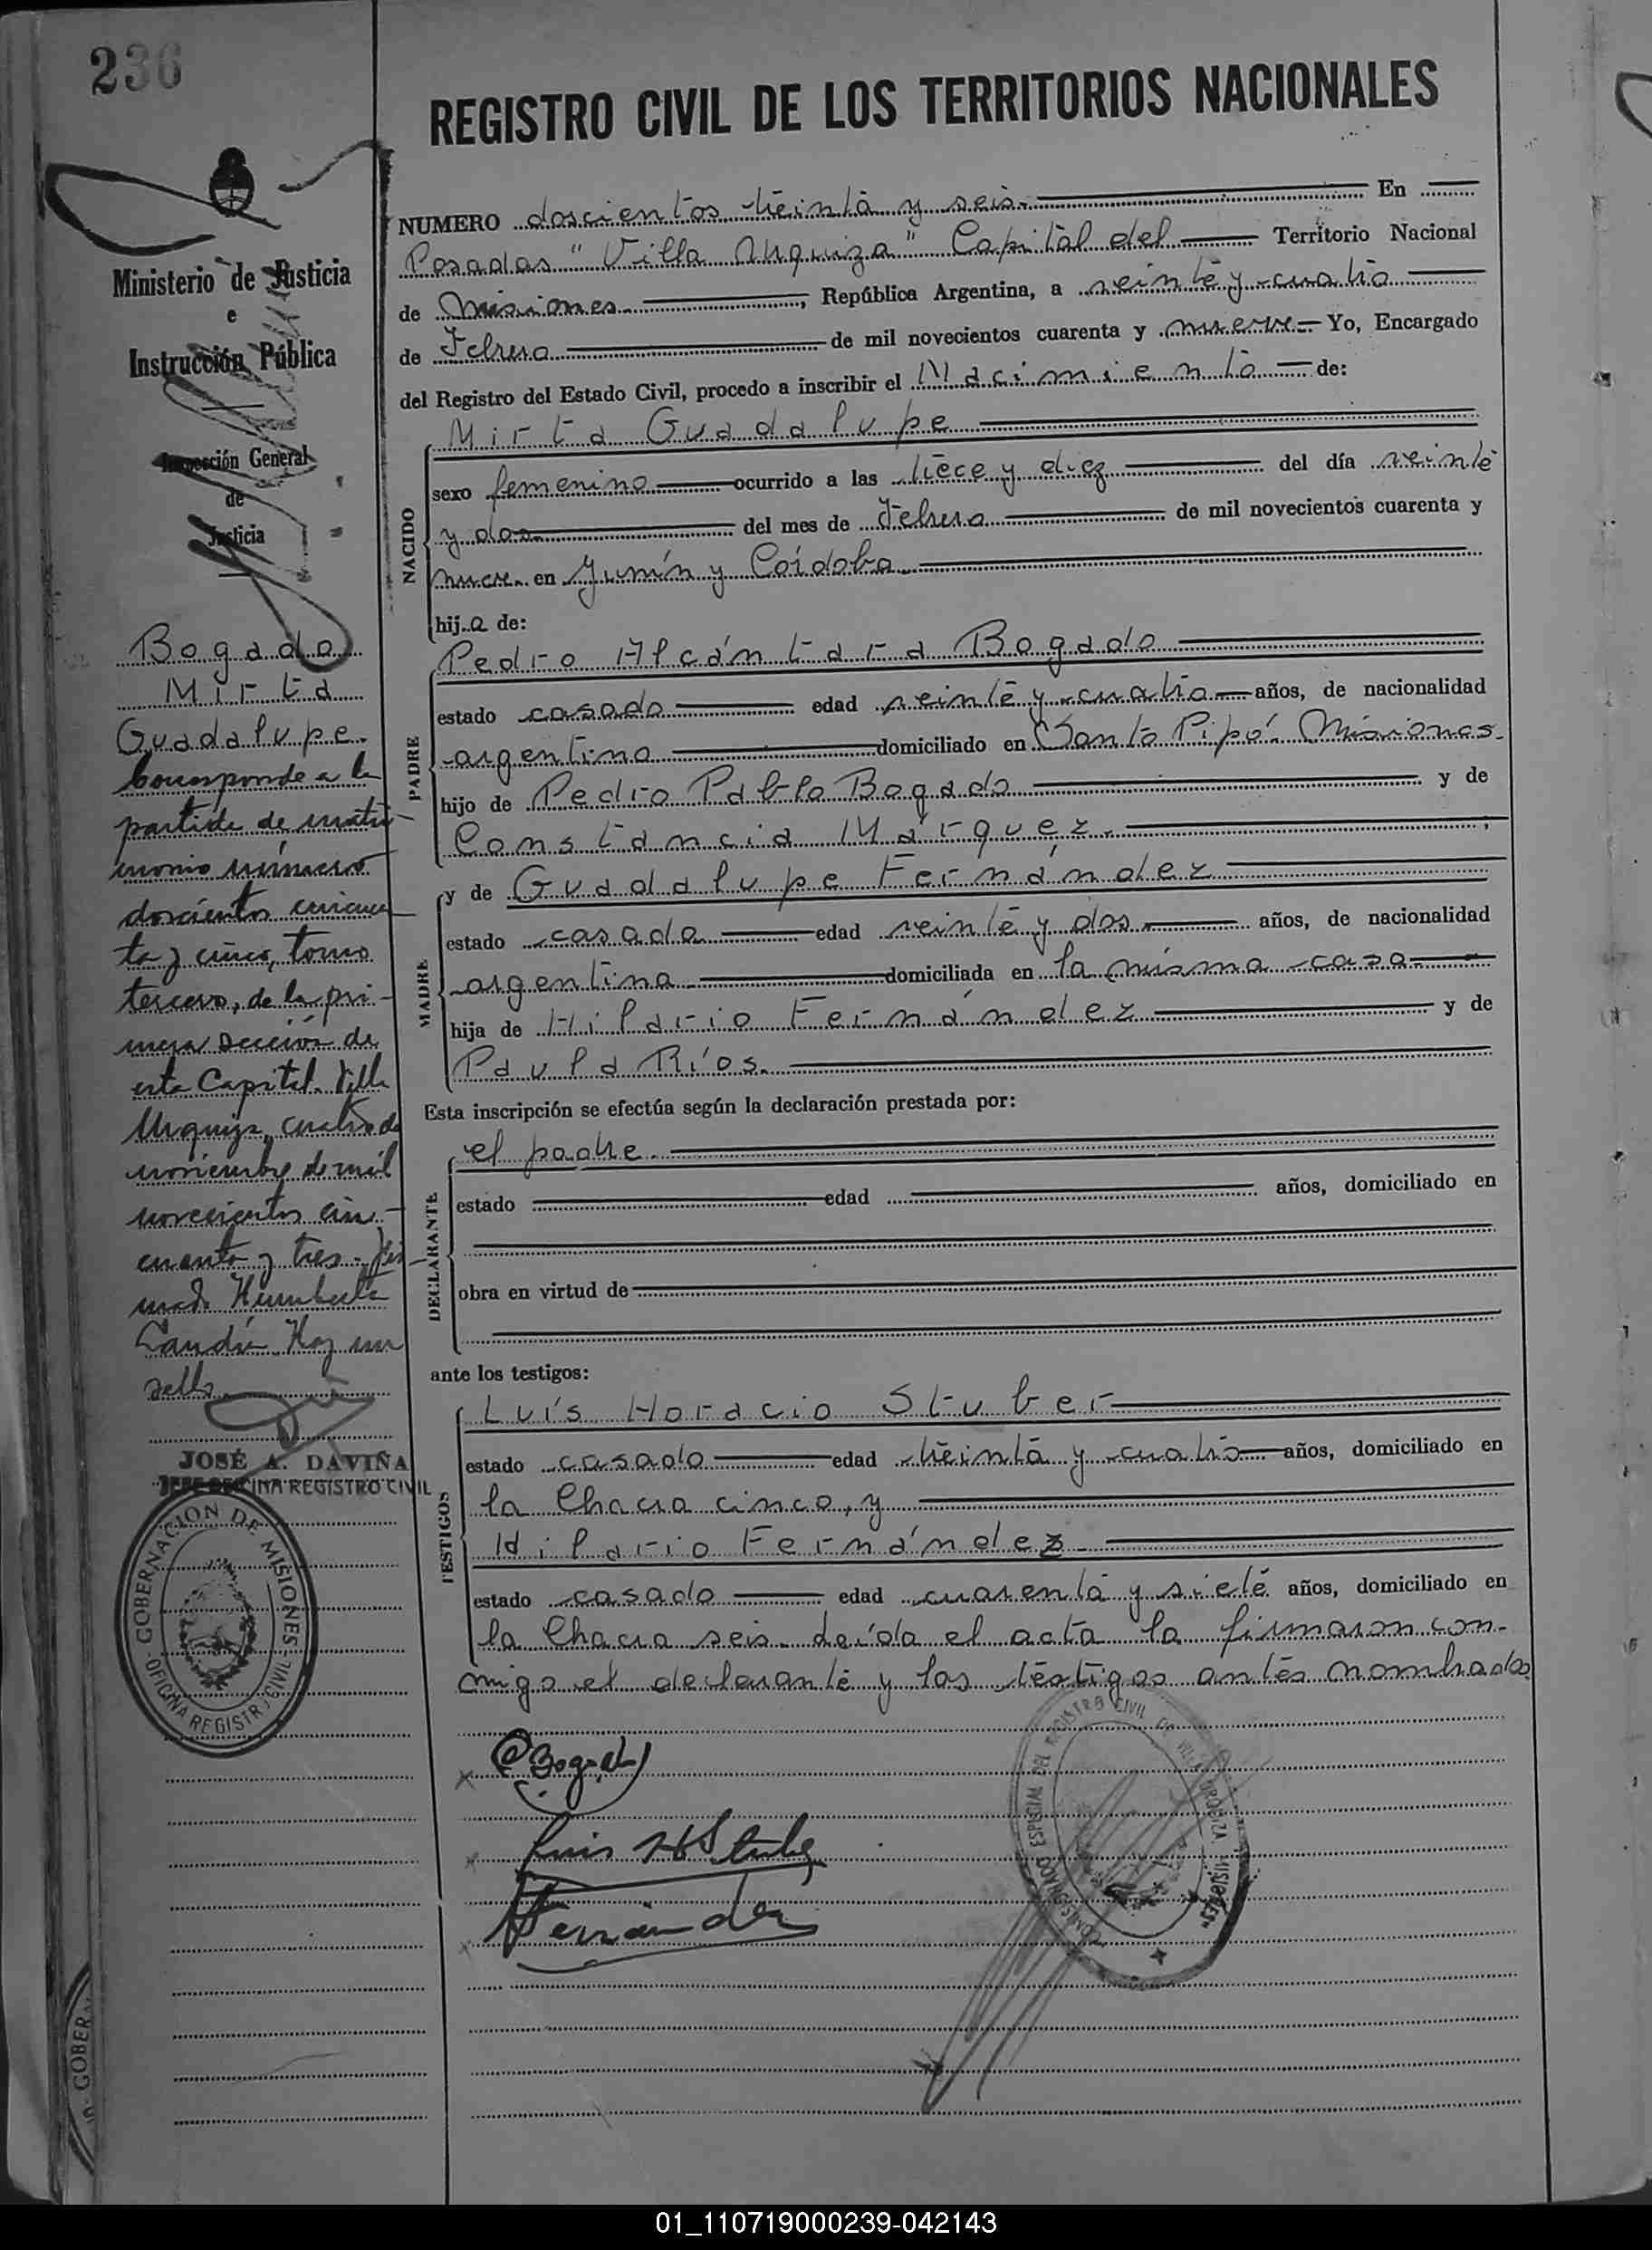 236
REGISTRO CIVIL DE LOS TERRITORIOS NACIONALES
Ministerio de Justicia
e
Instrucción Pública
Inspección General
de
Justicia
NUMERO doscientos treinta y seis. En
Posadas "Villa Urquiza" Capital del Territorio Nacional
de Misiones. , República Argentina, a veinte y cuatro
de Febrero de mil novecientos cuarenta y nueve. Yo, Encargado
del Registro del Estado Civil, procedo a inscribir el Nacimiento de:
Mirta Guadalupe
NACIDO
sexo femenino ocurrido a las trece y diez del día veinte
y dos. del mes de Febrero de mil novecientos cuarenta y
nueve. en Junín y Córdoba
hija de:
PADRE
Pedro Alcántara Bogado
estado casado edad veinte y cuatro años, de nacionalidad
argentino domiciliado en Santo Pipó. Misiones.
hijo de Pedro Pablo Bogado y de
Constancia Márquez.
MADRE
y de Guadalupe Fernández
estado casada edad veinte y dos. años, de nacionalidad
argentina. domiciliada en la misma casa.
hija de Hilario Fernández y de
Paula Ríos.
Esta inscripción se efectúa según la declaración prestada por:
DECLARANTE
el padre.
estado edad años, domiciliado en
obra en virtud de
ante los testigos:
TESTIGOS
Luís Horacio Stuber
estado casado edad treinta y cuatro años, domiciliado en
la Chacra cinco, y
Hilario Fernández.
estado casado edad cuarenta y siete años, domiciliado en
la Chacra seis. Leída el acta la firmaron con-
migo el declarante y los testigos antes nombrados
PBogado
Luis H Stuber
HFernández
COMISIONADO ESPECIAL DEL REGISTRO CIVIL DE VILLA URQUIZA MISIONES
Bogado
Mirta
Guadalupe.
Corresponde a la
partida de matri-
monio número
doscientos cincuen-
ta y cinco, tomo
tercero, de la pri-
mera sección de
esta Capital. Villa
Urquiza, cuatro de
noviembre de mil
novecientos cin-
cuenta y tres. Fir-
mado Humberto
Hay un
sello.
JOSÉ A. DAVIÑA
JEFE OFICINA REGISTRO CIVIL
GOBERNACION DE MISIONES
OFICINA REGISTRO CIVIL
GOBER
01_110719000239-042143